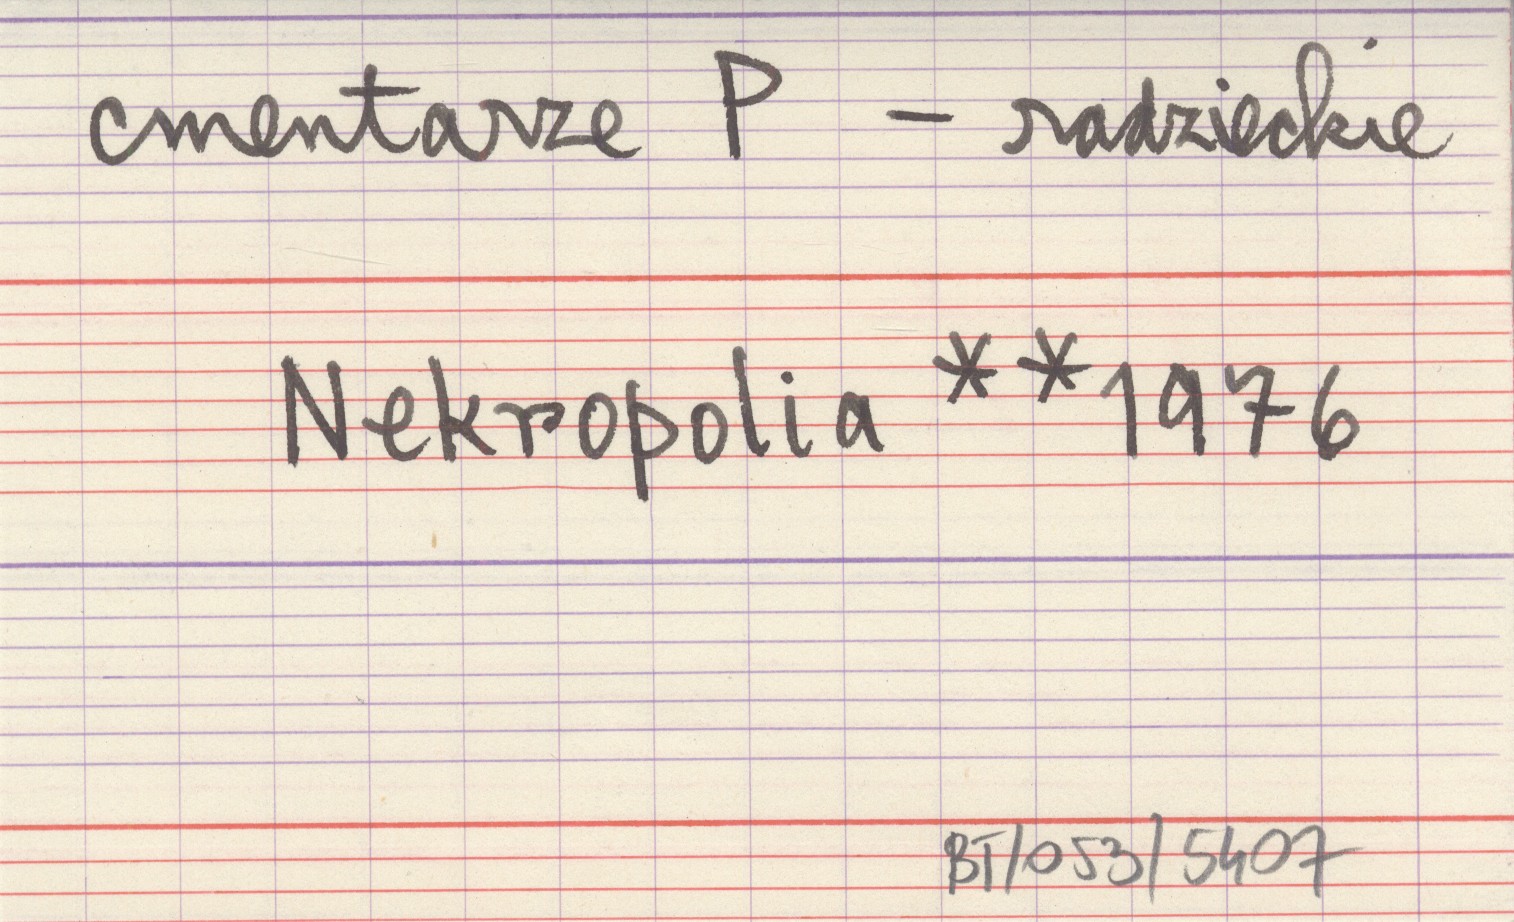 cmentarze P - radzieckie
Nekropolia **1976
BT/053/5407